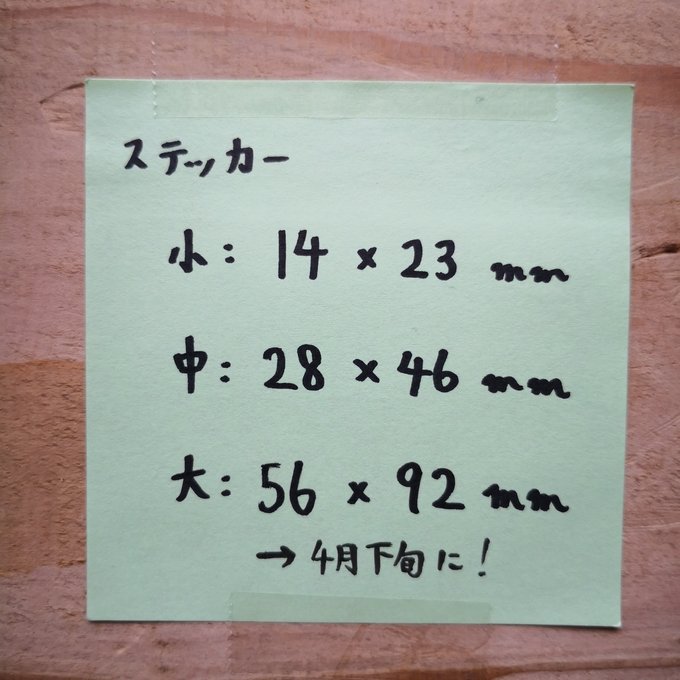 ステッカー
小: 14 × 23 mm
中: 28 × 46 mm
大: 56 × 92 mm
→ 4月下旬に!